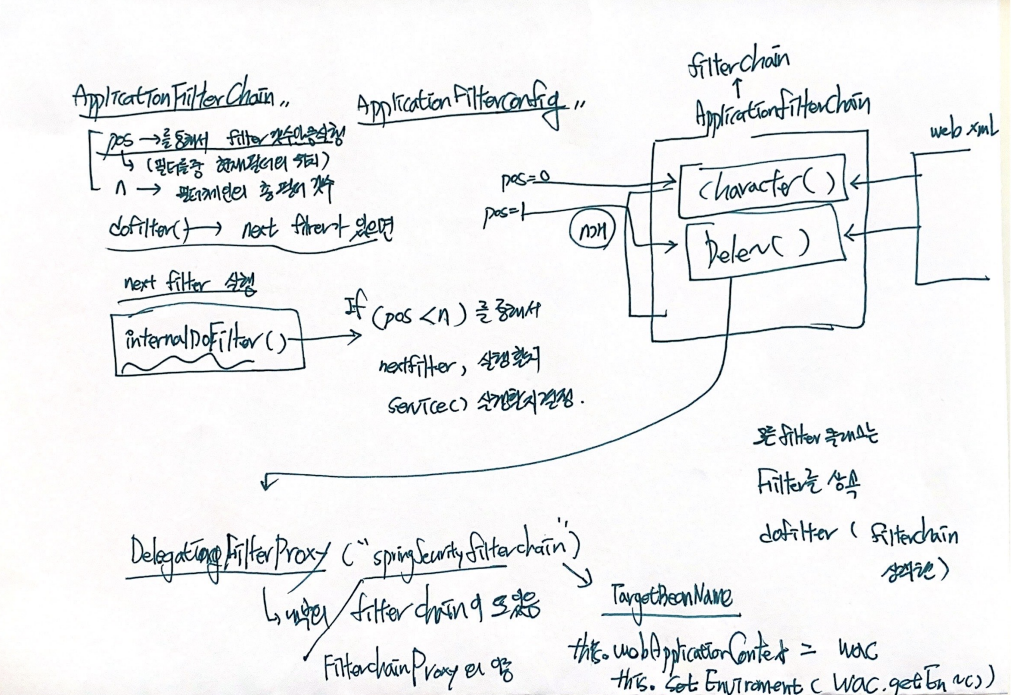 ApplicationFilterChain..
pos → 를 통해서 filter 갯수만큼실행
↳ (필터들중 현재필터의 위치)
n → 필터체인의 총 필터 갯수
dofilter() → next filter가 있으면
next filter 실행
internalDoFilter()
ApplicationFilterConfig..
If (pos < n) 를 통해서
nextfilter, 실행할지
service() 실행할지결정.
filterchain
↑
ApplicationfilterChain
web.xml
pos=0
character()
pos=1
n개
Dele~()
모든 filter 클래스는
Filter를 상속
dofilter ( filterchain
DelegatingFilterProxy ("springSecurityfilterchain")
↳ 내부의 filter chain이 또있음
FilterchainProxy
TargetBeanName
this.webApplicationContext = wac
this. set Enviroment ( wac.getEn~())